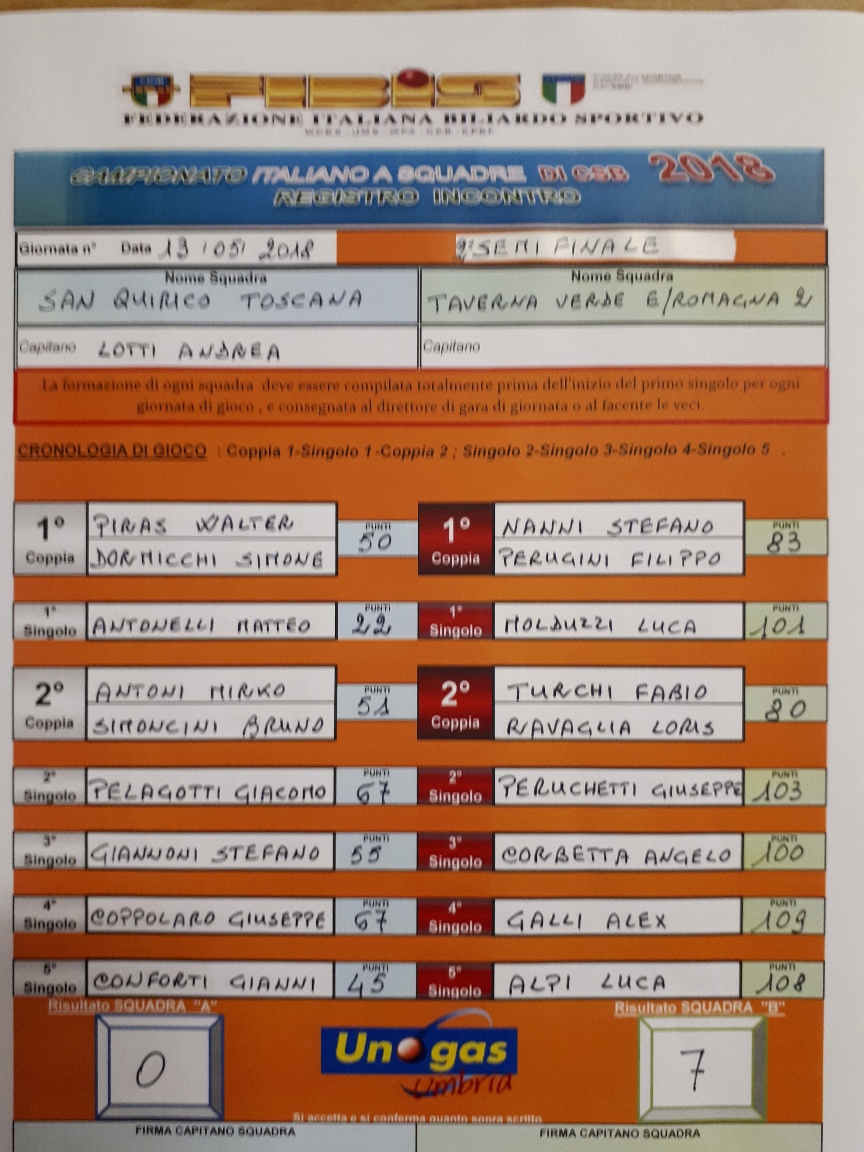 FIBiS
FEDERAZIONE ITALIANA BILIARDO SPORTIVO
CAMPIONATO ITALIANO A SQUADRE DI CSB 2018
REGISTRO INCONTRO
Giornata n° Data 13/05/2018 SEMIFINALE
Nome Squadra Nome Squadra
SAN QUIRICO TOSCANA TAVERNA VERDE E/ROMAGNA 2
Capitano LOTTI ANDREA Capitano
La formazione di ogni squadra deve essere compilata totalmente prima dell'inizio del primo singolo per ogni
giornata di gioco , e consegnata al direttore di gara di giornata o al facente le veci.
CRONOLOGIA DI GIOCO : Coppia 1-Singolo 1-Coppia 2 ; Singolo 2-Singolo 3-Singolo 4-Singolo 5 .
1° Coppia PIRAS WALTER PUNTI 50 1° Coppia NANNI STEFANO PUNTI 83
DORMICCHI SIMONE PERUGINI FILIPPO
1° Singolo ANTONELLI MATTEO PUNTI 22 1° Singolo MOLDUZZI LUCA PUNTI 101
2° Coppia ANTONI MIRKO PUNTI 51 2° Coppia TURCHI FABIO PUNTI 80
SIMONCINI BRUNO RAVAGLIA LORIS
2° Singolo PELAGOTTI GIACOMO PUNTI 67 2° Singolo PERUCHETTI GIUSEPPE PUNTI 103
3° Singolo GIANNONI STEFANO PUNTI 55 3° Singolo CORBETTA ANGELO PUNTI 100
4° Singolo COPPOLARO GIUSEPPE PUNTI 67 4° Singolo GALLI ALEX PUNTI 109
5° Singolo CONFORTI GIANNI PUNTI 45 5° Singolo ALPI LUCA PUNTI 108
Risultato SQUADRA "A" Risultato SQUADRA "B"
0 Unogas Umbria 7
Si accetta e si conferma quanto sopra scritto
FIRMA CAPITANO SQUADRA FIRMA CAPITANO SQUADRA